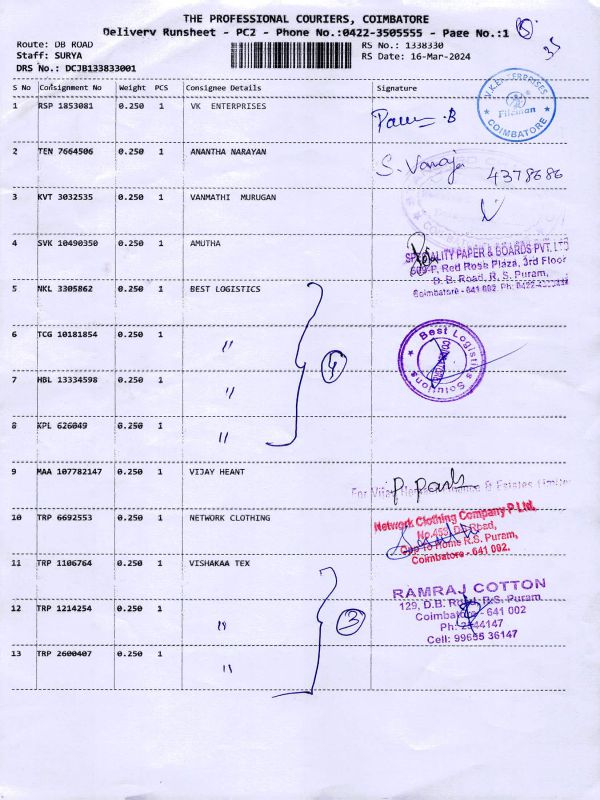 THE PROFESSIONAL COURIERS, COIMBATORE
Delivery Runsheet - PC2 - Phone No.:0422-3505555 - Page No.:1
35
Route: DB ROAD
Staff: SURYA
DRS No.: DCJB133833001
RS No.: 1338330
RS Date: 16-Mar-2024
S No Consignment No Weight PCS Consignee Details Signature
1 RSP 1853081 0.250 1 VK ENTERPRISES
V.K. ENTERPRISES
COIMBATORE
2 TEN 7664506 0.250 1 ANANTHA NARAYAN S. Vanaja 4378686
3 KVT 3032535 0.250 1 VANMATHI MURUGAN
4 SVK 10490350 0.250 1 AMUTHA
SPECIALITY PAPER & BOARDS PVT. LTD
Red Rose Plaza, 3rd Floor
D. B. Road, R. S. Puram,
Coimbatore - 641 002. Ph: 0422-
5 NKL 3305862 0.250 1 BEST LOGISTICS
6 TCG 10181854 0.250 1 "
7 HBL 13334598 0.250 1 " 4
Best Logistics Solutions
8 KPL 626049 0.250 1 "
9 MAA 107782147 0.250 1 VIJAY HEANT
For Vijay & Estates Limited
10 TRP 6692553 0.250 1 NETWORK CLOTHING
Network Clothing Company P Ltd,
No.453, D.B Road,
Opp To Home R.S. Puram,
Coimbatore - 641 002.
11 TRP 1106764 0.250 1 VISHAKAA TEX
12 TRP 1214254 0.250 1 " 3
RAMRAJ COTTON
129, D.B. Road, R.S. Puram,
Coimbatore - 641 002
Ph: 2544147
Cell: 99655 36147
13 TRP 2600407 0.250 1 "